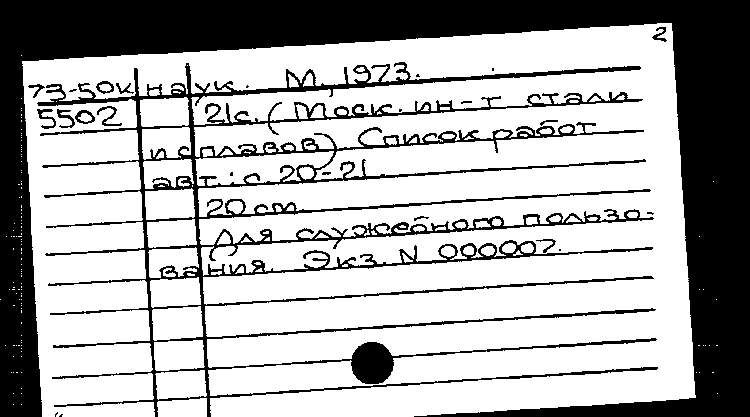 2
73-50к наук. М., 1973.
5502 21с. (Моск. ин-т стали
и сплавов). Список работ
авт.: с. 20-21.
20 см
Для служебного пользо-
вания. Экз. N 000002.